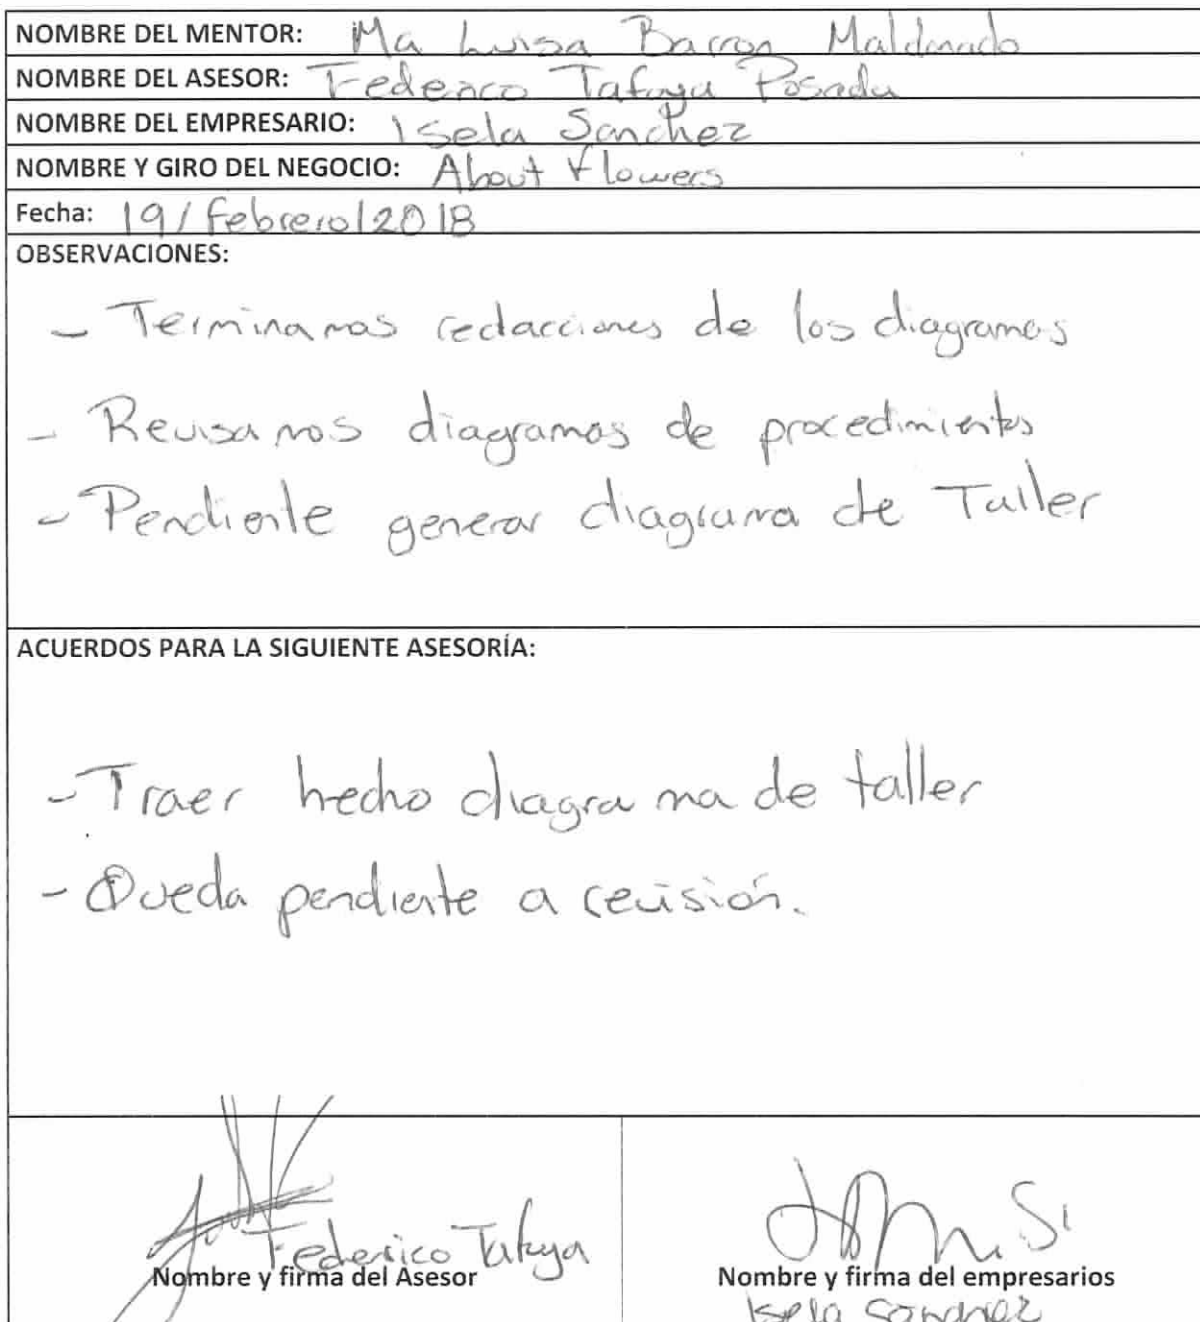 NOMBRE DEL MENTOR: Ma Luisa Barron Maldonado
NOMBRE DEL ASESOR: Federico Tafoya Posada
NOMBRE DEL EMPRESARIO: Isela Sanchez
NOMBRE Y GIRO DEL NEGOCIO: About Flowers
Fecha: 19/febrero/2018
OBSERVACIONES:
- Terminamos redacciones de los diagramas
- Revisamos diagramas de procedimientos
- Pendiente generar diagrama de Taller
ACUERDOS PARA LA SIGUIENTE ASESORÍA:
- Traer hecho diagrama de taller
- Queda pendiente a revisión.
Federico Tafoya
Nombre y firma del Asesor
Nombre y firma del empresarios
Isela Sanchez